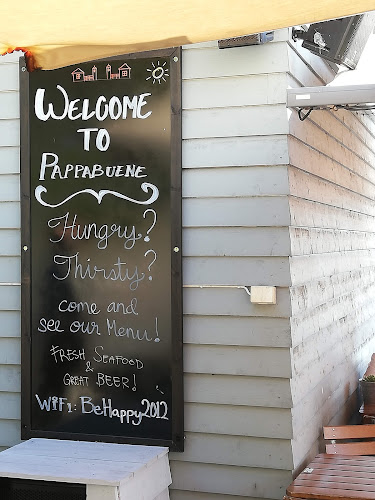 WELCOME
TO
PAPPABUENE
Hungry?
Thirsty?
come and
see our Menu!
FRESH SEAFOOD
&
GREAT BEER!
WIFI: BeHappy2012